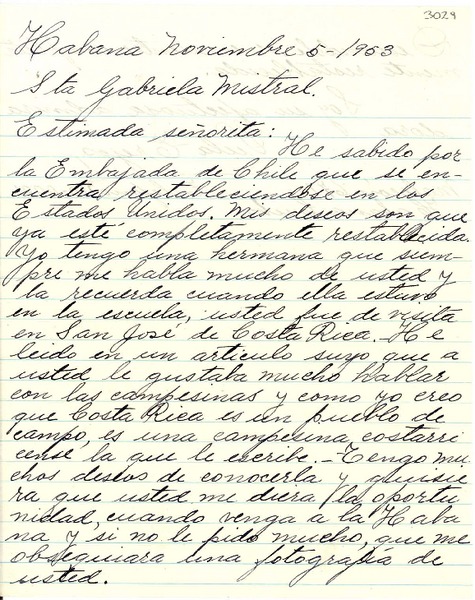 3029
Habana Noviembre 5-1953
Sta Gabriela Mistral.
Estimada señorita:
He sabido por
la Embajada de Chile que se en-
cuentra restableciendose en los
Estados Unidos. Mis deseos son que
ya esté completamente restablecida.
Yo tengo una hermana que siem-
pre me habla mucho de usted y
la recuerda cuando ella estuvo
en la escuela, usted fue de visita
en San José de Costa Rica. He
leido en un articulo suyo que a
usted le gustaba mucho hablar
con las campesinas y como yo creo
que Costa Rica es un pueblo de
campo, es una campesina costarri
cense la que le escribe.-Tengo mu
chos deseos de conocerla y quisie
ra que usted me diera la oportu
nidad, cuando venga a la Haba
na y si no le pido mucho, que me
obsequiara una fotografía de
usted.